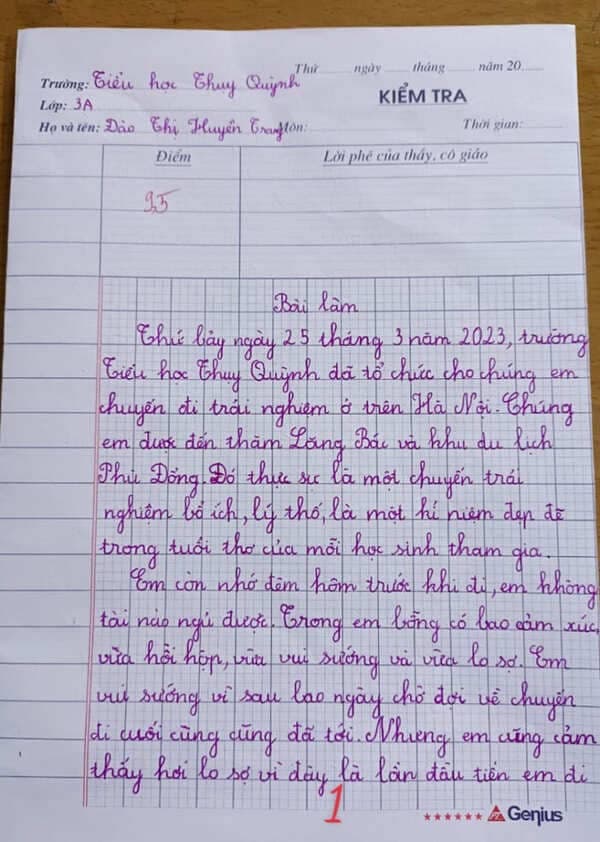 Thứ ...... ngày ...... tháng ...... năm 20......
Trường: Tiểu học Thụy Quỳnh
KIỂM TRA
Lớp: 3A
Họ và tên: Đào Thị Huyền Trang Môn: Thời gian:
Điểm Lời phê của thầy, cô giáo
9,5
Bài làm
Thứ bảy ngày 25 tháng 3 năm 2023, trường
Tiểu học Thụy Quỳnh đã tổ chức cho chúng em
chuyến đi trải nghiệm ở trên Hà Nội. Chúng
em được đến thăm Lăng Bác và khu du lịch
Phù Đổng. Đó thực sự là một chuyến trải
nghiệm bổ ích, lý thố, là một kỉ niệm đẹp đẽ
trong tuổi thơ của mỗi học sinh tham gia.
Em còn nhớ đêm hôm trước khi đi, em không
tài nào ngủ được. Trong em bỗng có bao cảm xúc,
vừa hồi hộp, vừa vui sướng và vừa lo sợ. Em
vui sướng vì sau bao ngày chờ đợi về chuyến
đi cuối cùng cũng đã tới. Nhưng em cũng cảm
thấy hơi lo sợ vì đây là lần đầu tiên em đi
1
Genius